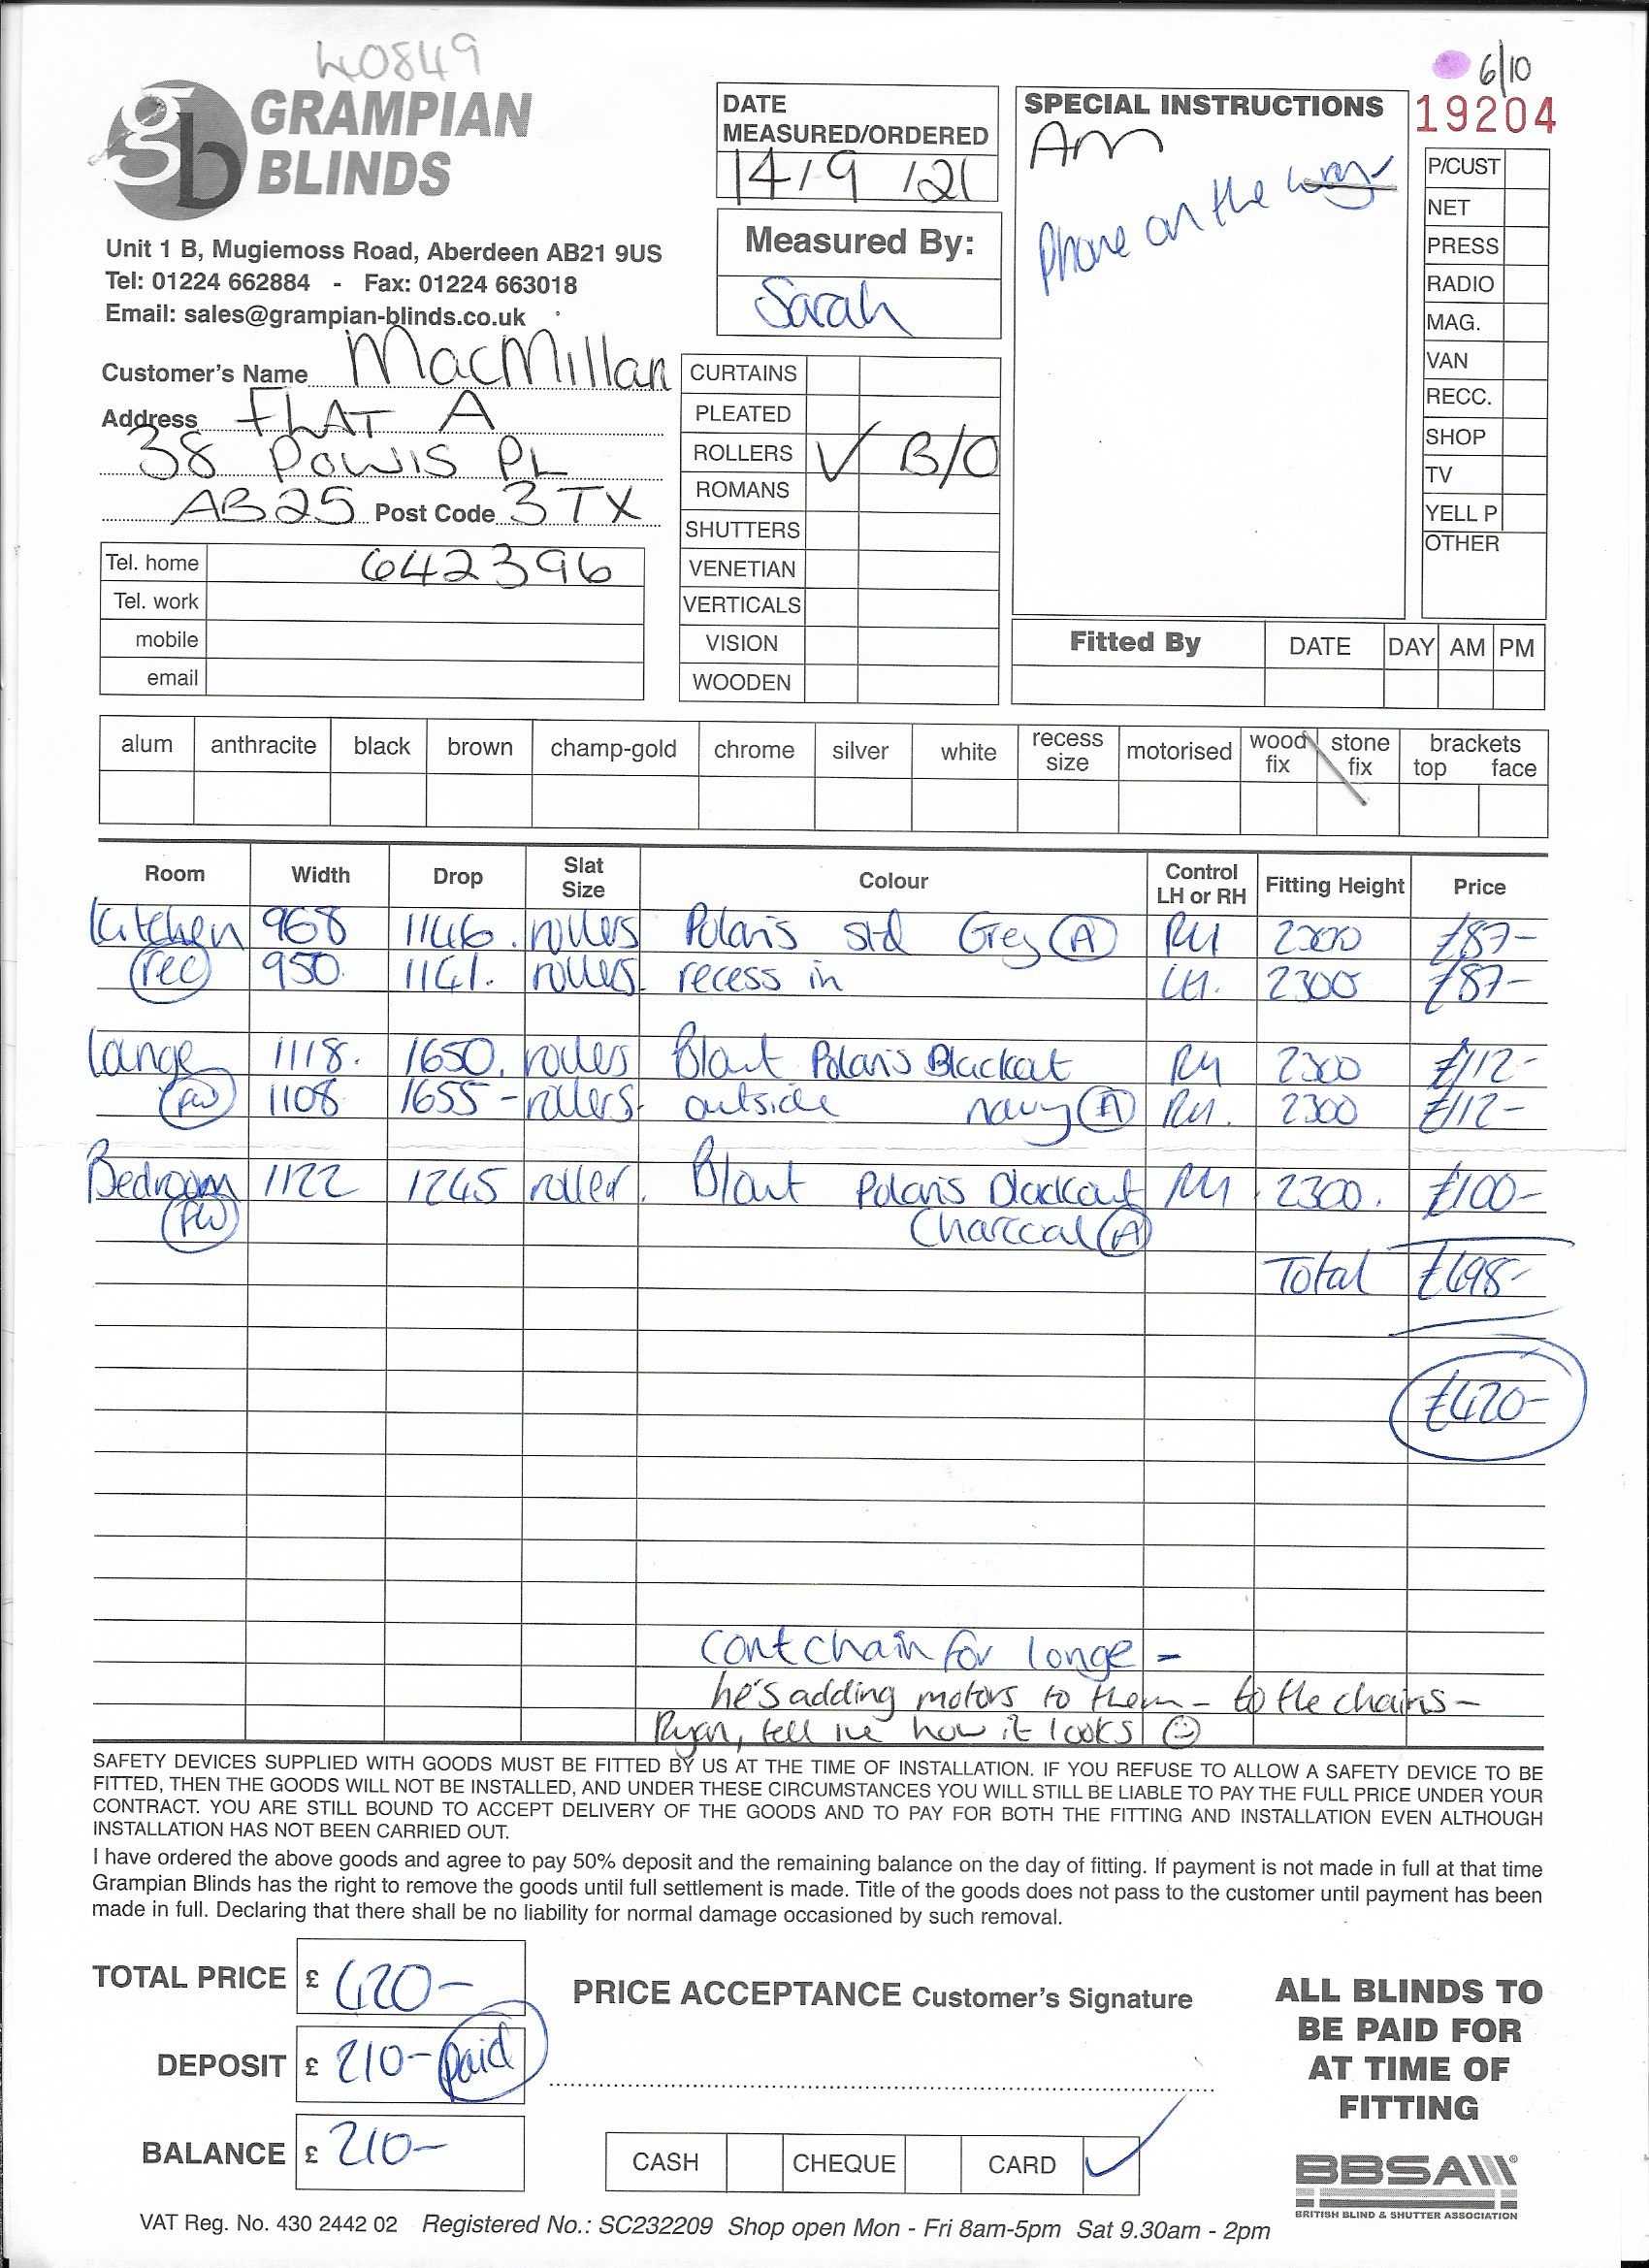 40849
6/10
19204
gb GRAMPIAN BLINDS
Unit 1 B, Mugiemoss Road, Aberdeen AB21 9US
Tel: 01224 662884 - Fax: 01224 663018
Email: sales@grampian-blinds.co.uk
DATE MEASURED/ORDERED
14/9/21
Measured By:
Sarah
SPECIAL INSTRUCTIONS
Am
Phone on the way
P/CUST
NET
PRESS
RADIO
MAG.
VAN
RECC.
SHOP
TV
YELL P
OTHER
Customer's Name MacMillan
Address FLAT A
38 Powis PL
AB25 Post Code 3TX
Tel. home 642396
Tel. work
mobile
email
CURTAINS
PLEATED
ROLLERS ✓ B/O
ROMANS
SHUTTERS
VENETIAN
VERTICALS
VISION
WOODEN
Fitted By DATE DAY AM PM
alum anthracite black brown champ-gold chrome silver white recess size motorised wood fix stone fix brackets top face
Room Width Drop Slat Size Colour Control LH or RH Fitting Height Price
Kitchen 968 1146. rollers Polaris std Grey (A) RH 2300 £87-
(rec) 950. 1141. rollers. recess in LH. 2300 £87-
Longe 1118. 1650. rollers Blout Polaris Blackout RH 2300 £112-
(FW) 1108 1655- rollers. outside navy (A) RH. 2300 £112-
Bedroom 1122 1245 roller. Blout Polaris Blackout RH. 2300. £100-
(FW) Charcoal (A)
Total £498-
£420-
Cont chain for longe -
he's adding motors to them - to the chains -
Ryan, tell me how it looks ☺
SAFETY DEVICES SUPPLIED WITH GOODS MUST BE FITTED BY US AT THE TIME OF INSTALLATION. IF YOU REFUSE TO ALLOW A SAFETY DEVICE TO BE
FITTED, THEN THE GOODS WILL NOT BE INSTALLED, AND UNDER THESE CIRCUMSTANCES YOU WILL STILL BE LIABLE TO PAY THE FULL PRICE UNDER YOUR
CONTRACT. YOU ARE STILL BOUND TO ACCEPT DELIVERY OF THE GOODS AND TO PAY FOR BOTH THE FITTING AND INSTALLATION EVEN ALTHOUGH
INSTALLATION HAS NOT BEEN CARRIED OUT.
I have ordered the above goods and agree to pay 50% deposit and the remaining balance on the day of fitting. If payment is not made in full at that time
Grampian Blinds has the right to remove the goods until full settlement is made. Title of the goods does not pass to the customer until payment has been
made in full. Declaring that there shall be no liability for normal damage occasioned by such removal.
TOTAL PRICE £ 420-
DEPOSIT £ 210- paid
BALANCE £ 210-
PRICE ACCEPTANCE Customer's Signature
CASH CHEQUE CARD ✓
ALL BLINDS TO
BE PAID FOR
AT TIME OF
FITTING
BBSA
BRITISH BLIND & SHUTTER ASSOCIATION
VAT Reg. No. 430 2442 02 Registered No.: SC232209 Shop open Mon - Fri 8am-5pm Sat 9.30am - 2pm